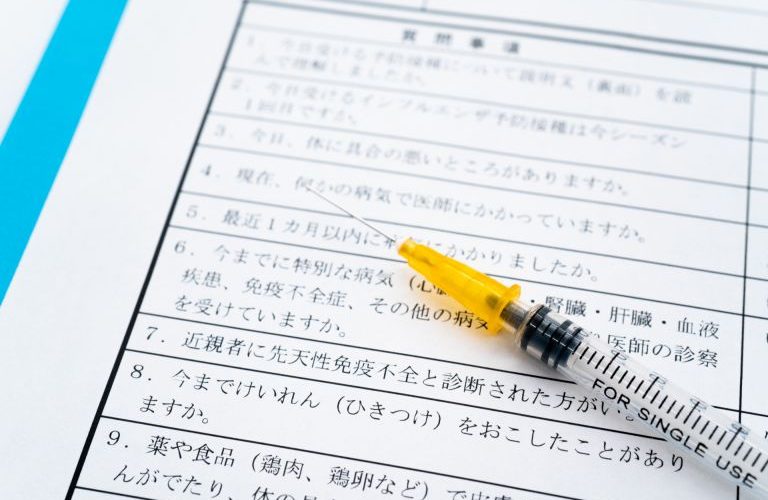 質問事項
1．今日受ける予防接種について説明文（裏面）を読
んで理解しましたか。
2．今日受けるインフルエンザ予防接種は今シーズン
1回目ですか。
3．今日、体に具合の悪いところがありますか。
4．現在、何かの病気で医師にかかっていますか。
5．最近1カ月以内に にかかりましたか。
6．今までに特別な病気（心 ・腎臓・肝臓・血液
疾患、免疫不全症、その他の病 医師の診察
を受けていますか。
7．近親者に先天性免疫不全と診断された方がい
8．今までけいれん（ひきつけ）をおこしたことがあり
ますか。
9．薬や食品（鶏肉、鶏卵など）で皮
んがでたり、体の
FOR SINGLE USE